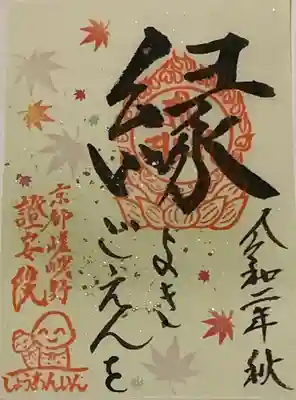 令和二年秋
縁
よきごえんを
京都嵯峨野
證安院
しょうあんいん